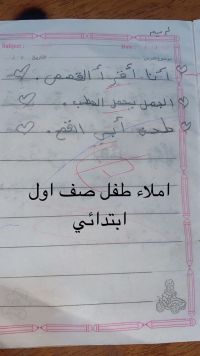 تريم
Subject :
Date : / /
أنا أقرأ القصص .
الجمل يحمل الحطب .
طحن أبي القمح .
املاء طفل صف اول
ابتدائي